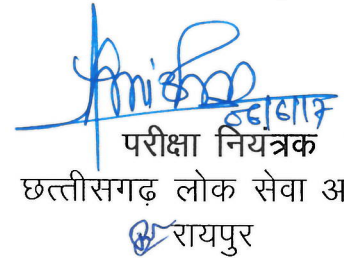 06/6/17
परीक्षा नियंत्रक
छत्तीसगढ़ लोक सेवा अ
रायपुर